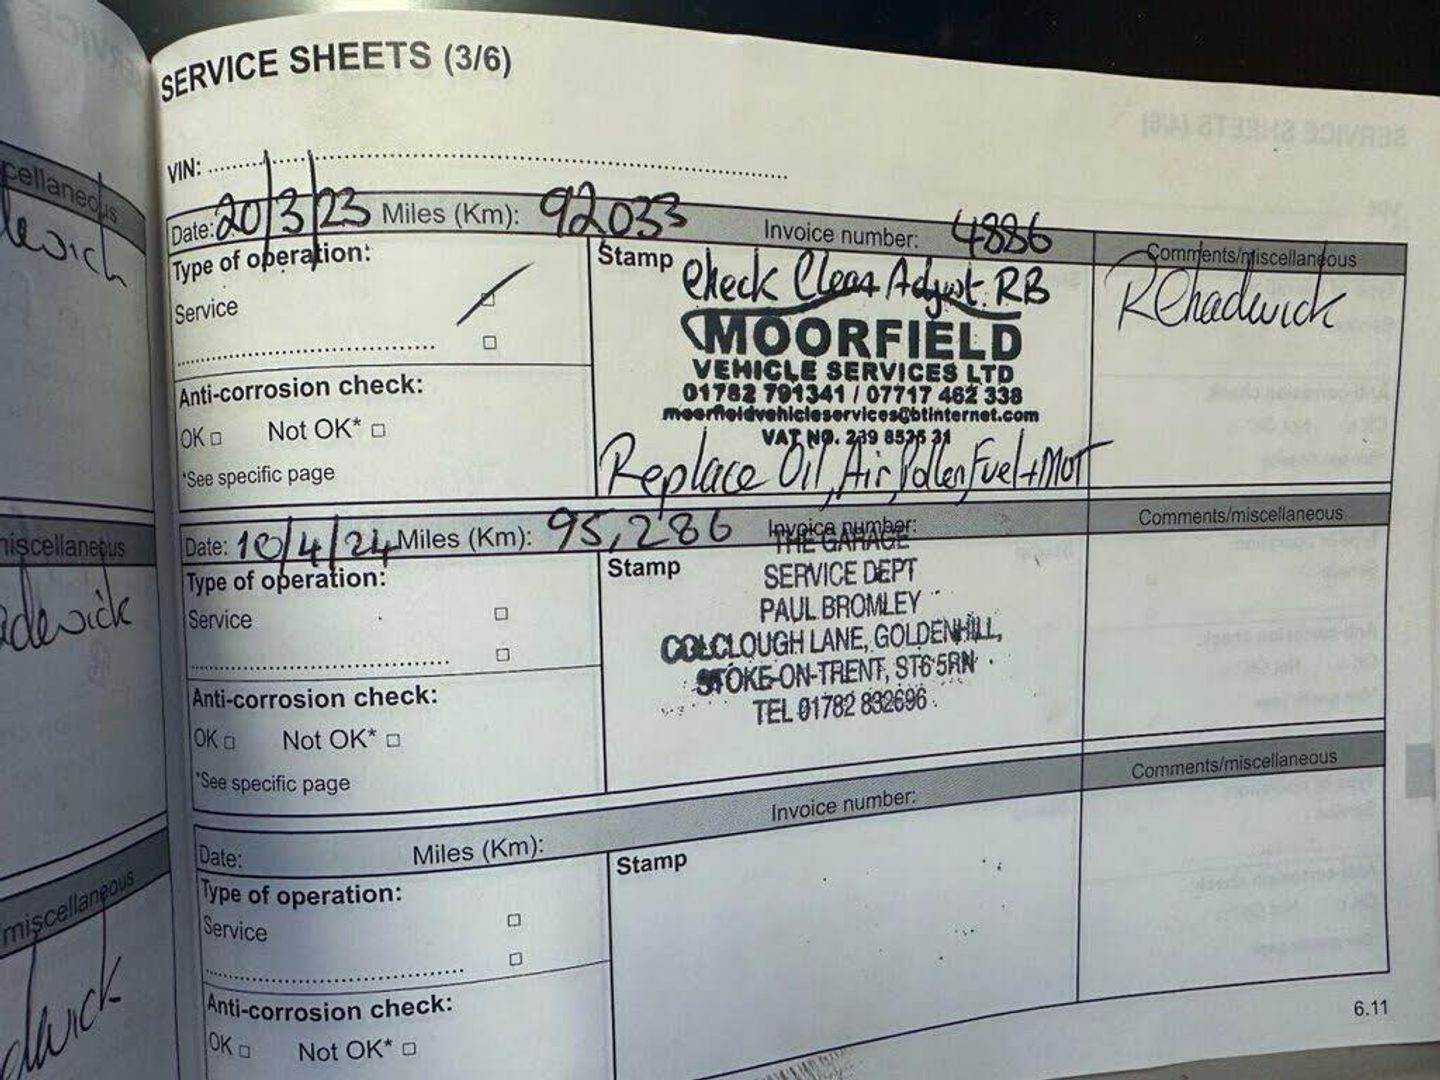 SERVICE SHEETS (3/6)
VIN:
Date: 20/3/23 Miles (Km): 92033 Invoice number: 4886 Comments/miscellaneous
Type of operation:
Service
Stamp Check Clean Adjust RB
MOORFIELD
VEHICLE SERVICES LTD
01782 791341 / 07717 462 338
moorfieldvehicleservices@btinternet.com
VAT NO. 239 8535 31
Replace Oil, Air, Pollen, Fuel + MOT
RChadwick
Anti-corrosion check:
OK Not OK*
*See specific page
Date: 10/4/24 Miles (Km): 95,286 Invoice number: Comments/miscellaneous
Type of operation:
Service
Stamp
THE GARAGE
SERVICE DEPT
PAUL BROMLEY
COLCLOUGH LANE, GOLDENHILL,
STOKE-ON-TRENT, ST6 5RN
TEL 01782 832696
Anti-corrosion check:
OK Not OK*
*See specific page
Date: Miles (Km): Invoice number: Comments/miscellaneous
Type of operation:
Service
Stamp
Anti-corrosion check:
OK Not OK*
6.11